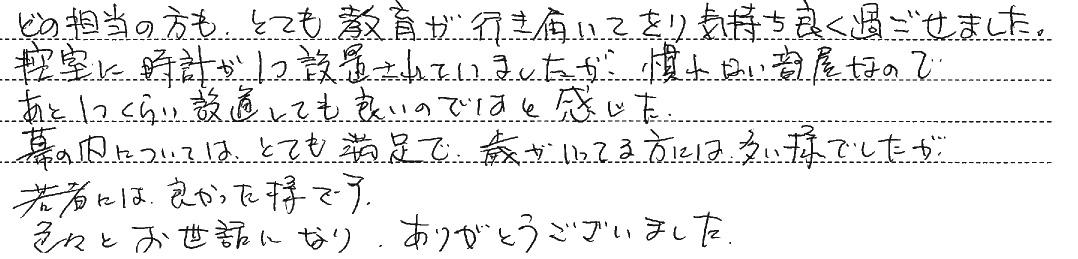 どの担当の方も、とても教育が行き届いており気持ち良く過ごせました。
控室に時計が1つ設置されていましたが、慣れない部屋なので
あと1つくらい設置しても良いのではと感じた。
幕の内については、とても満足で、歳がいってる方には、多い様でしたが、
若者には、良かった様です。
色々とお世話になり、ありがとうございました。